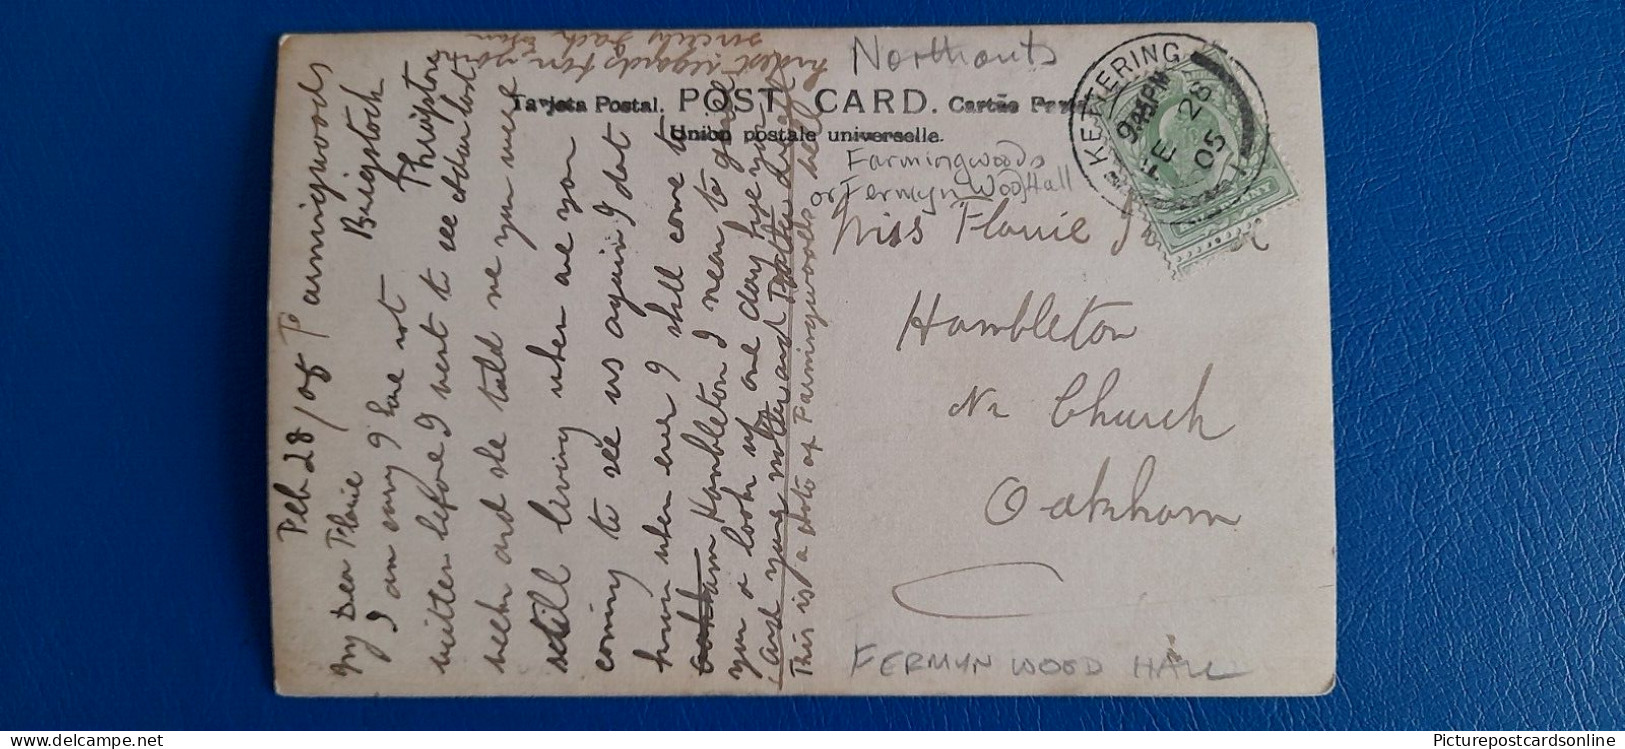 Feb 28/05 Farmingwoods
Brigstock
Thrapston
My Dear Florie
I am sorry I have not
written before I went to see
week and she told me you were
still living when are you
coming to see us again I don't
know when ever I shall come to
Hambleton I mean to give
you a look up one day hope you
and your mother and
This is a Photo of Farmingwoods Hall
kindest regards from yours
sincerely
Northants
Tarjeta Postal. POST CARD. Cartão
Union postale universelle.
Farmingwoods
or Fermyn Wood Hall
KETTERING
9.45PM
FE 28
05
Miss Florrie
Hambleton
Nr Church
Oakham
FERMYN WOOD HALL
Picturepostcards.com
Picturepostcardsonline